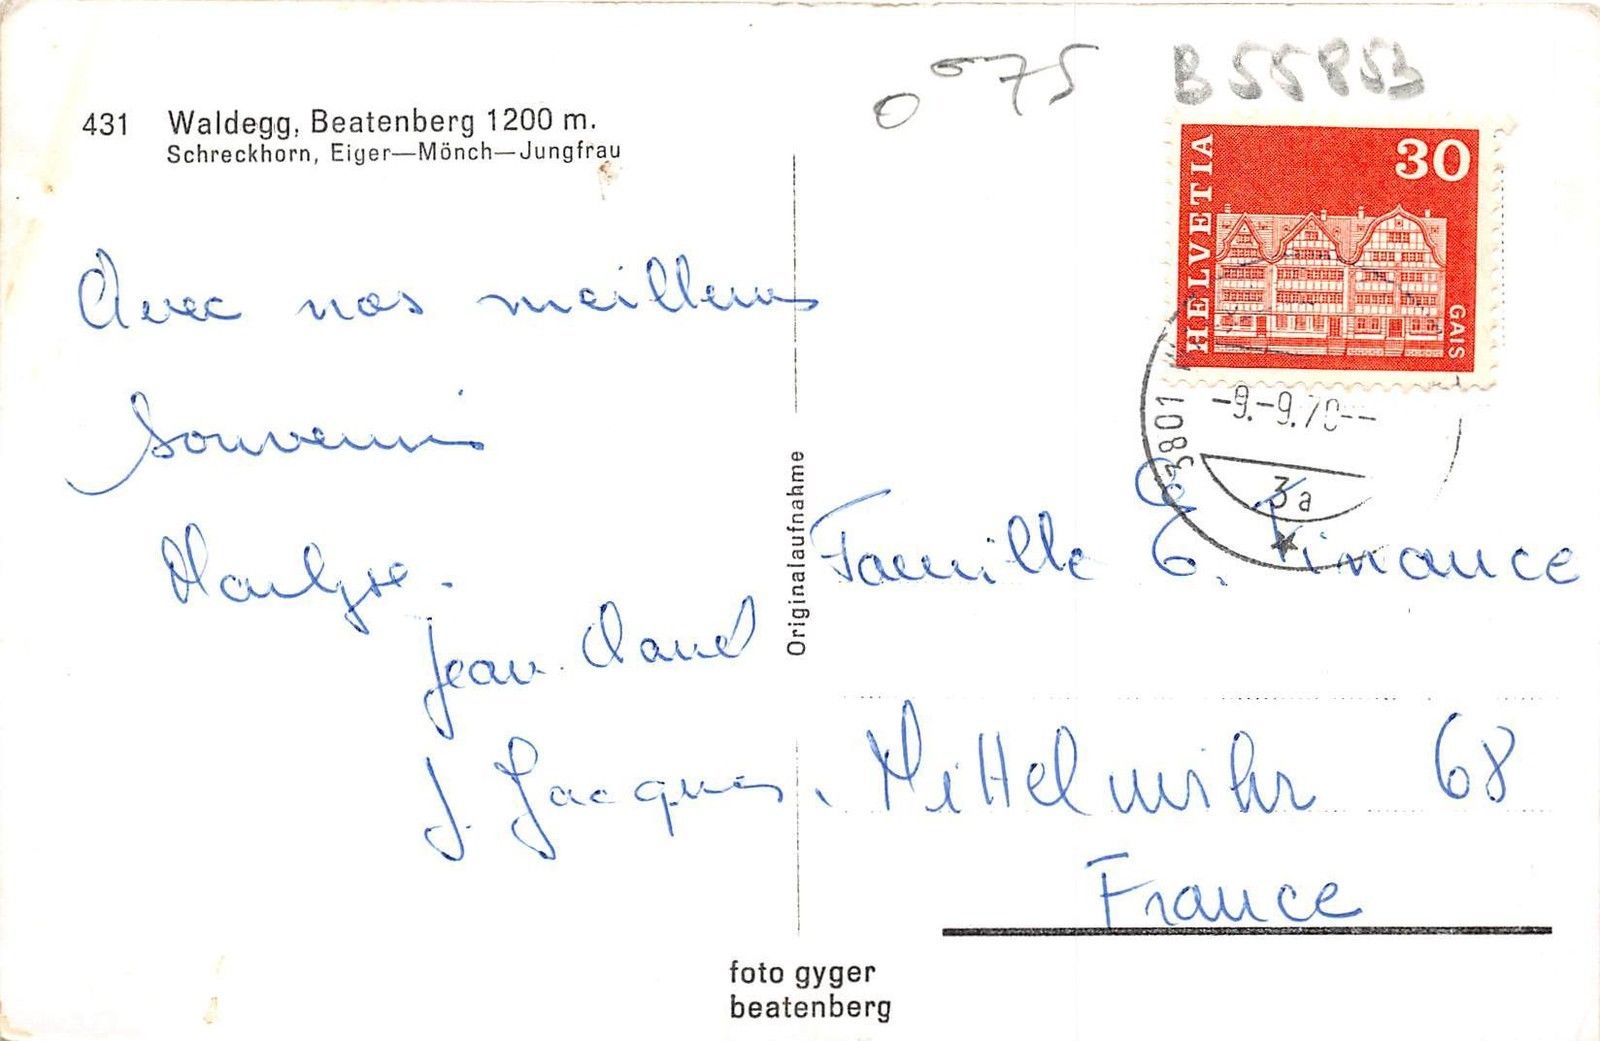 075 B55853
431 Waldegg, Beatenberg 1200 m.
Schreckhorn, Eiger—Mönch—Jungfrau
HELVETIA
30
GAIS
3801
-9.-9.70--
3a
Avec nos meilleurs
Souvenirs
Jean-Claud
J. Jacques.
Originalaufnahme
Famille E. Finance
Mittelwihr 68
France
foto gyger
beatenberg